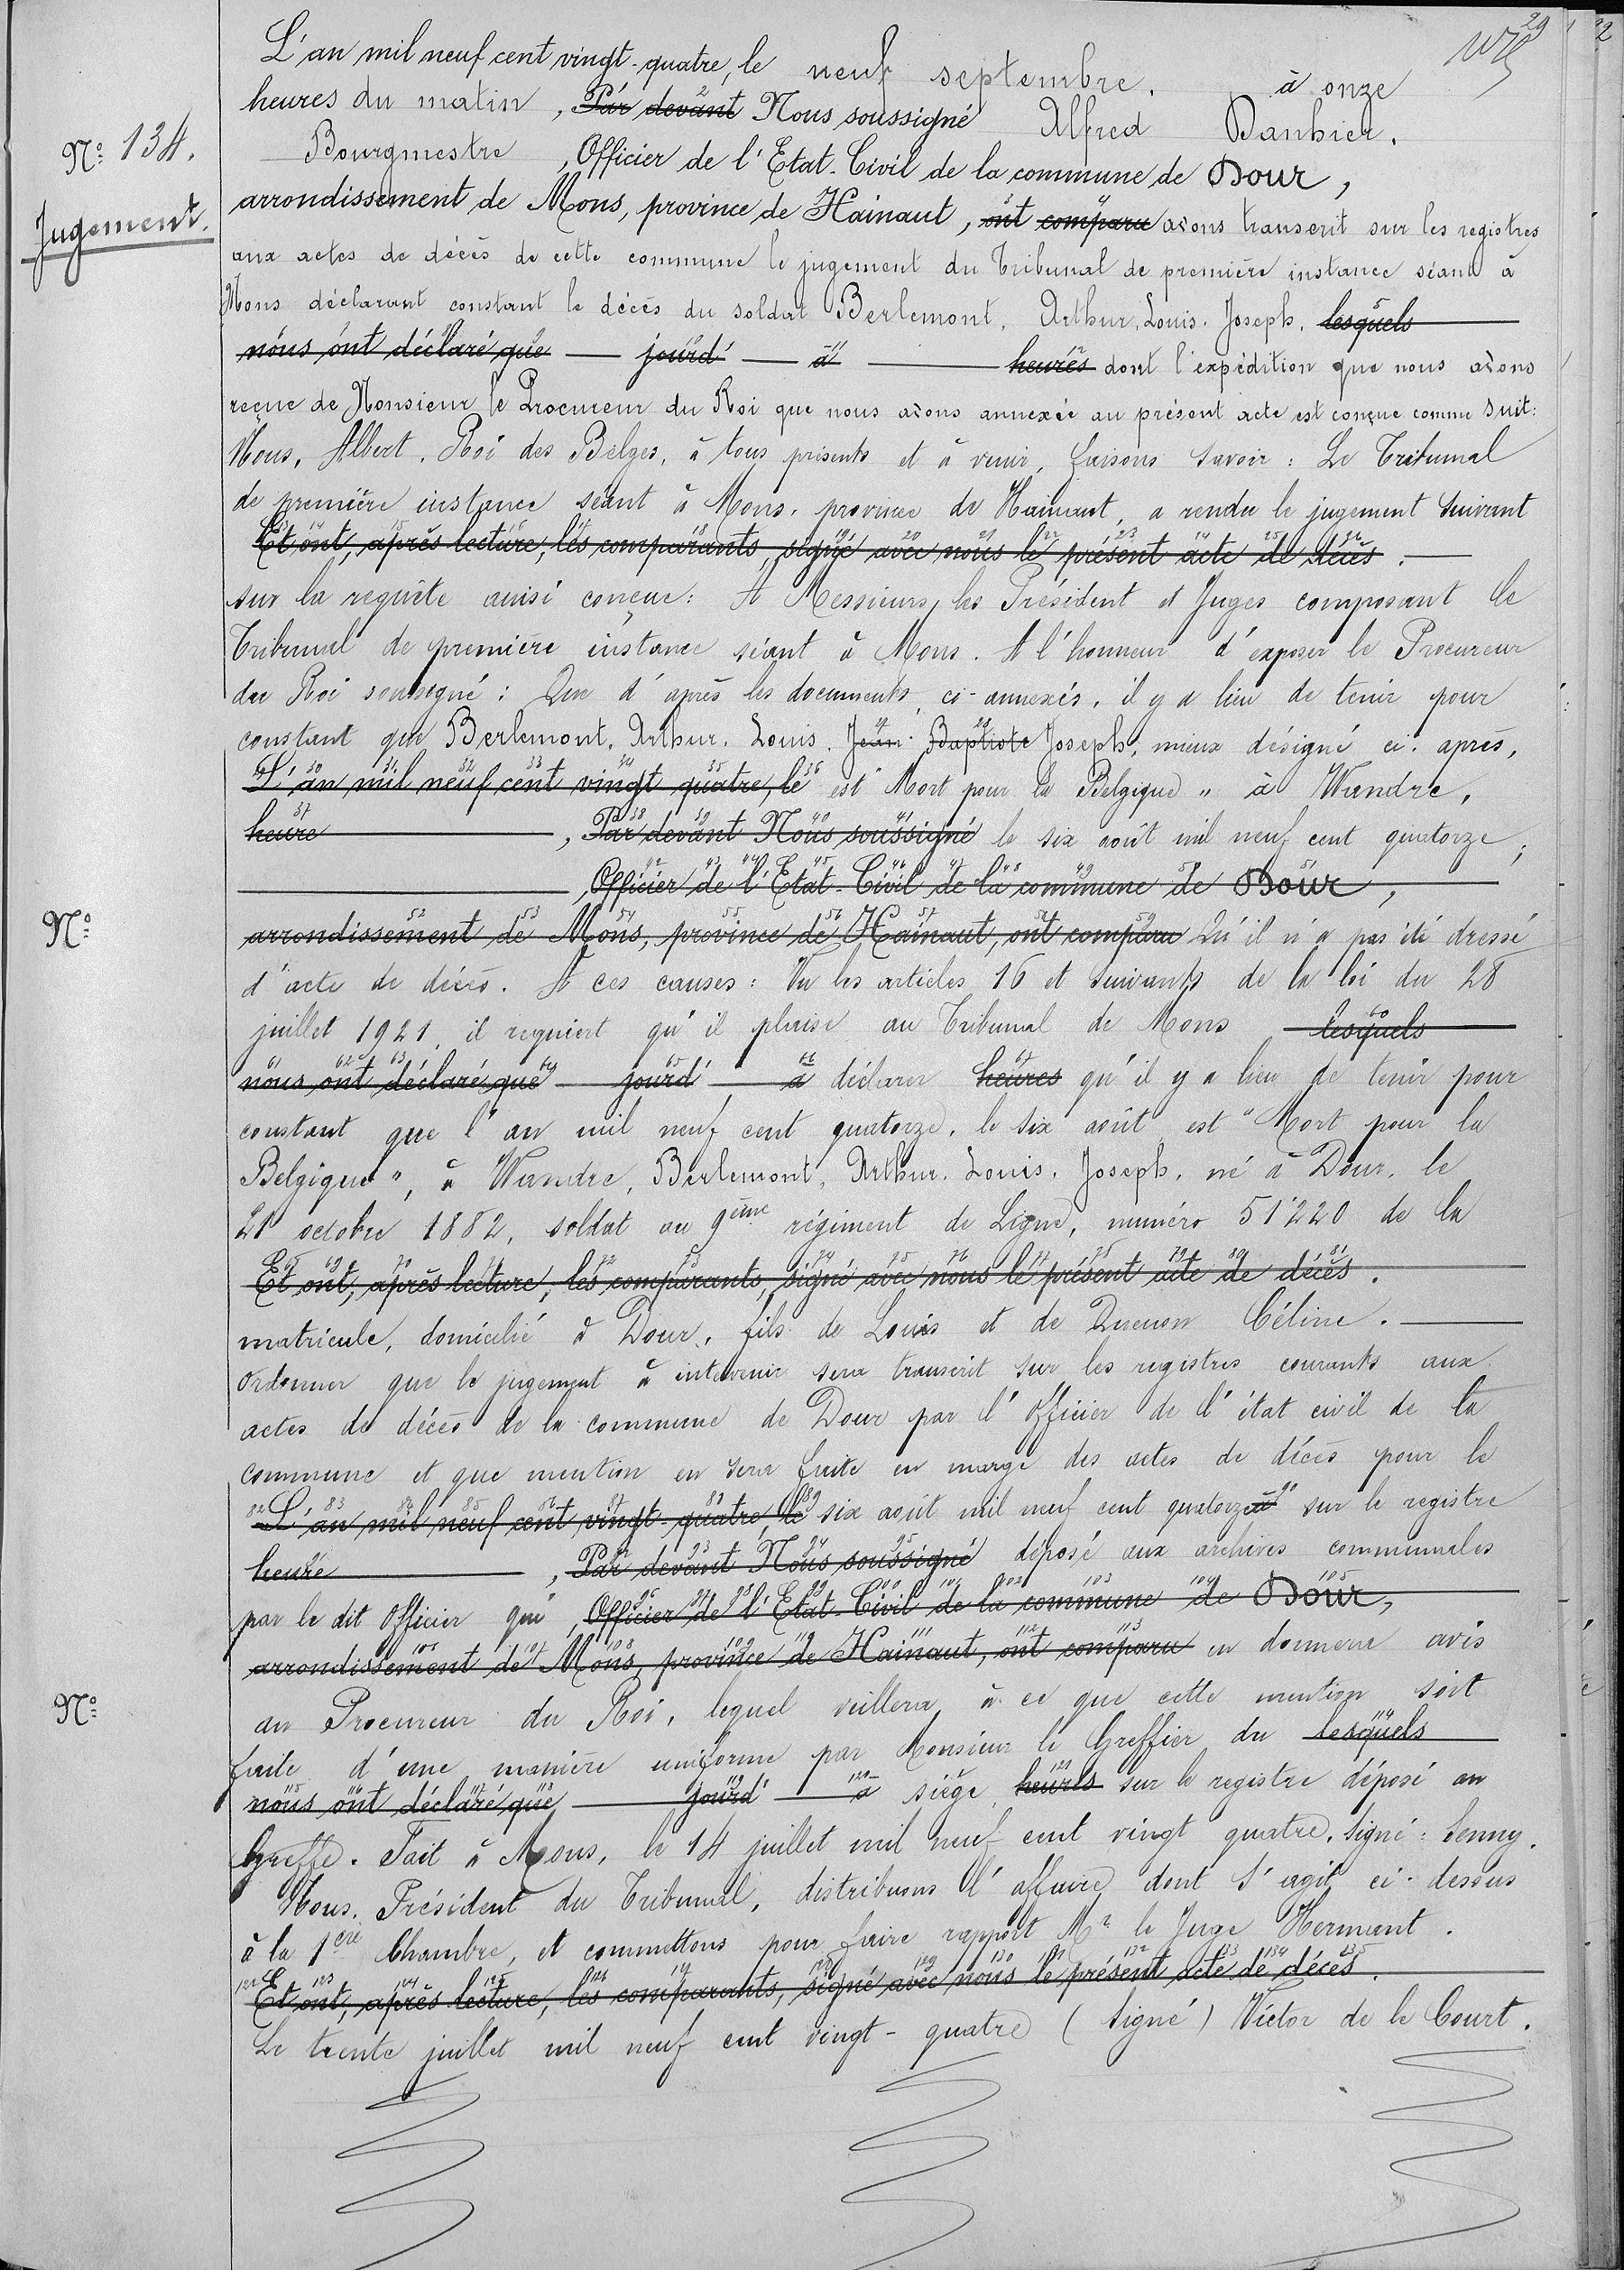 29
L'an mil neuf cent vingt-quatre, le neuf septembre. à onze
heures du matin, Par devant Nous soussigné Alfred Danhier.
Nº 134.
Bourgmestre, Officier de l'Etat-Civil de la commune de Dour,
Jugement.
arrondissement de Mons, province de Hainaut, ont comparu avons transcrit sur les registres
aux actes de décès de cette commune le jugement du Tribunal de première instance séant à
Mons déclarant constant le décès du soldat Berlemont, Arthur, Louis. Joseph. lesquels
nous ont déclaré que jourd' à heures dont l'expédition que nous avons
reçue de Monsieur le Procureur du Roi que nous avons annexée au présent acte est conçue comme suit:
Nous, Albert, Roi des Belges, à tous présents et à venir, faisons savoir: Le Tribunal
de première instance séant à Mons, province de Hainaut, a rendu le jugement suivant
Et ont, après lecture, les comparants, signé avec nous le présent acte de décès.
sur la requête ainsi conçue: A Messieurs les Président et Juges composant le
Tribunal de première instance séant à Mons. A l'honneur d'exposer le Procureur
du Roi soussigné: Que d'après les documents ci-annexés, il y a lieu de tenir pour
constant que Berlemont, Arthur. Louis. Jean Baptiste Joseph, mieux désigné ci-après,
L'an mil neuf cent vingt quatre, le est "Mort pour la Belgique" à Wandre,
heure, Par devant Nous soussigné le six août mil neuf cent quatorze;
, Officier de l'Etat-Civil de la commune de Dour,
Nº
arrondissement de Mons, province de Hainaut, ont comparu Qu'il n'a pas été dressé
d'acte de décès. A ces causes: Vu les articles 16 et suivants de la loi du 28
juillet 1921, il requiert qu'il plaise au Tribunal de Mons lesquels
nous ont déclaré que jourd' à déclarer heures qu'il y a lieu de tenir pour
constant que l'an mil neuf cent quatorze, le six août est "Mort pour la
Belgique", à Wandre, Berlemont, Arthur. Louis. Joseph, né à Dour, le
21 octobre 1882, soldat au 9ème régiment de Ligne, numéro 51220 de la
Et ont, après lecture, les comparants, signé avec nous le présent acte de décès.
matricule, domicilié à Dour, fils de Louis et de Quenon Céline.
ordonner que le jugement à intervenir sera transcrit sur les registres courants aux
actes de décès de la commune de Dour par l'officier de l'état civil de la
commune et que mention en sera faite en marge des actes de décès pour le
L'an mil neuf cent vingt-quatre, le six août mil neuf cent quatorze à sur le registre
heure, Par devant Nous soussigné déposé aux archives communales
par le dit officier qui, Officier de l'Etat-Civil de la commune de Dour,
arrondissement de Mons, province de Hainaut, ont comparu en donnera avis
Nº
au Procureur du Roi, lequel veillera à ce que cette mention soit
faite d'une manière uniforme par Monsieur le Greffier du lesquels
nous ont déclaré que jourd' à siège heures sur le registre déposé au
Greffe. Fait à Mons, le 14 juillet mil neuf cent vingt quatre. Signé: Senny.
Nous, Président du Tribunal, distribuons l'affaire dont s'agit ci-dessus
à la 1ère Chambre, et commettons pour faire rapport Mr le Juge Hermant.
Et ont, après lecture, les comparants, signé avec nous le présent acte de décès.
Le trente juillet mil neuf cent vingt-quatre (Signé) Victor de le Court.